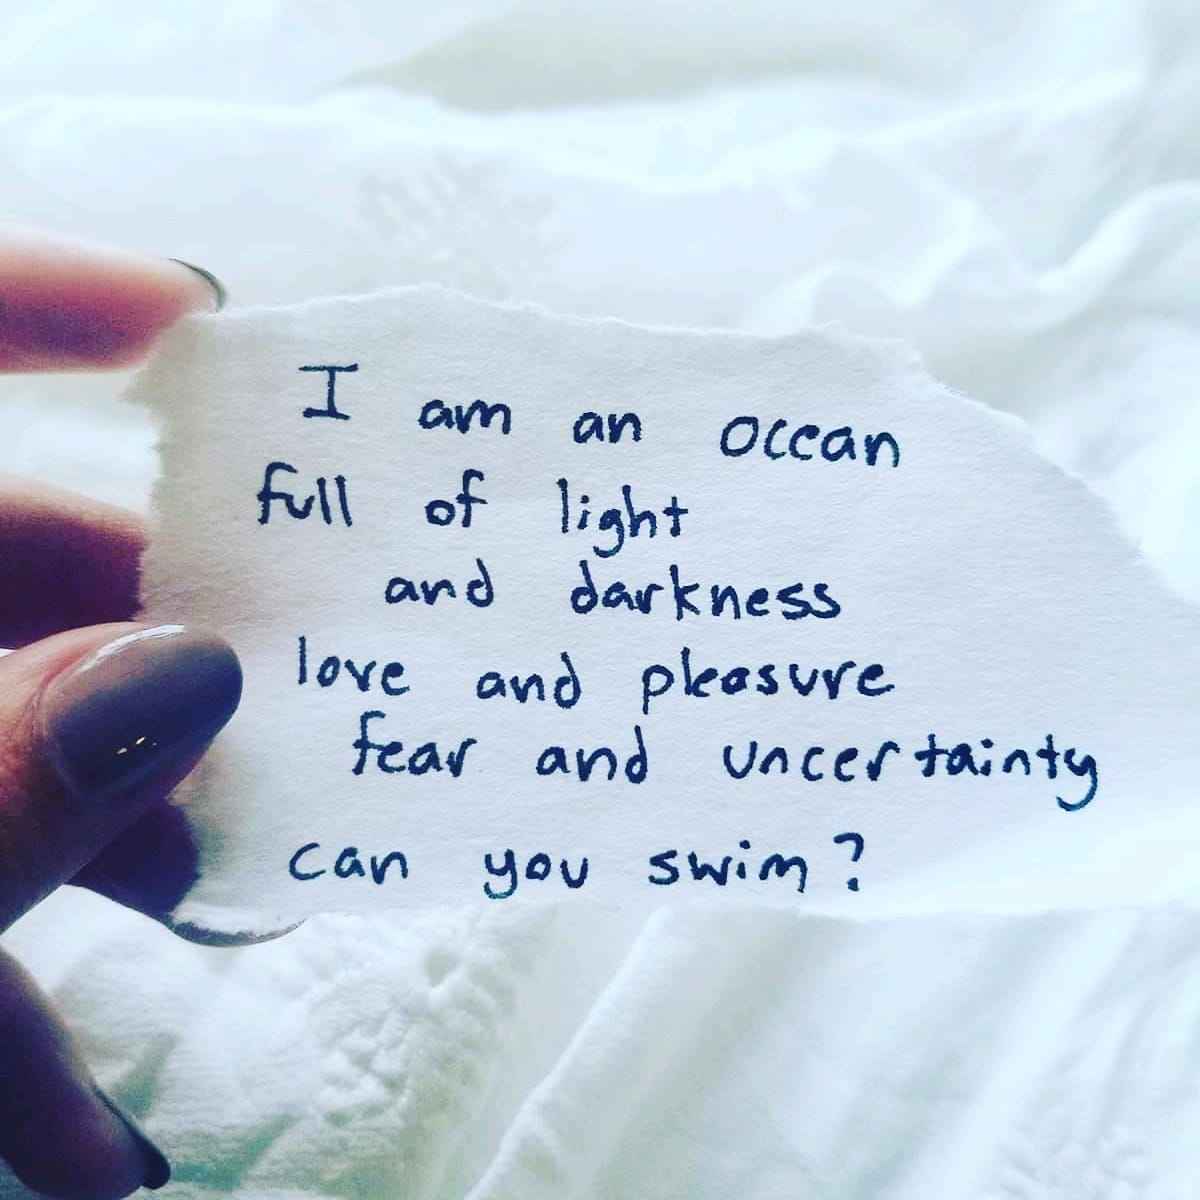 I am an ocean
full of light
and darkness
love and pleasure
fear and uncertainty
can you swim?